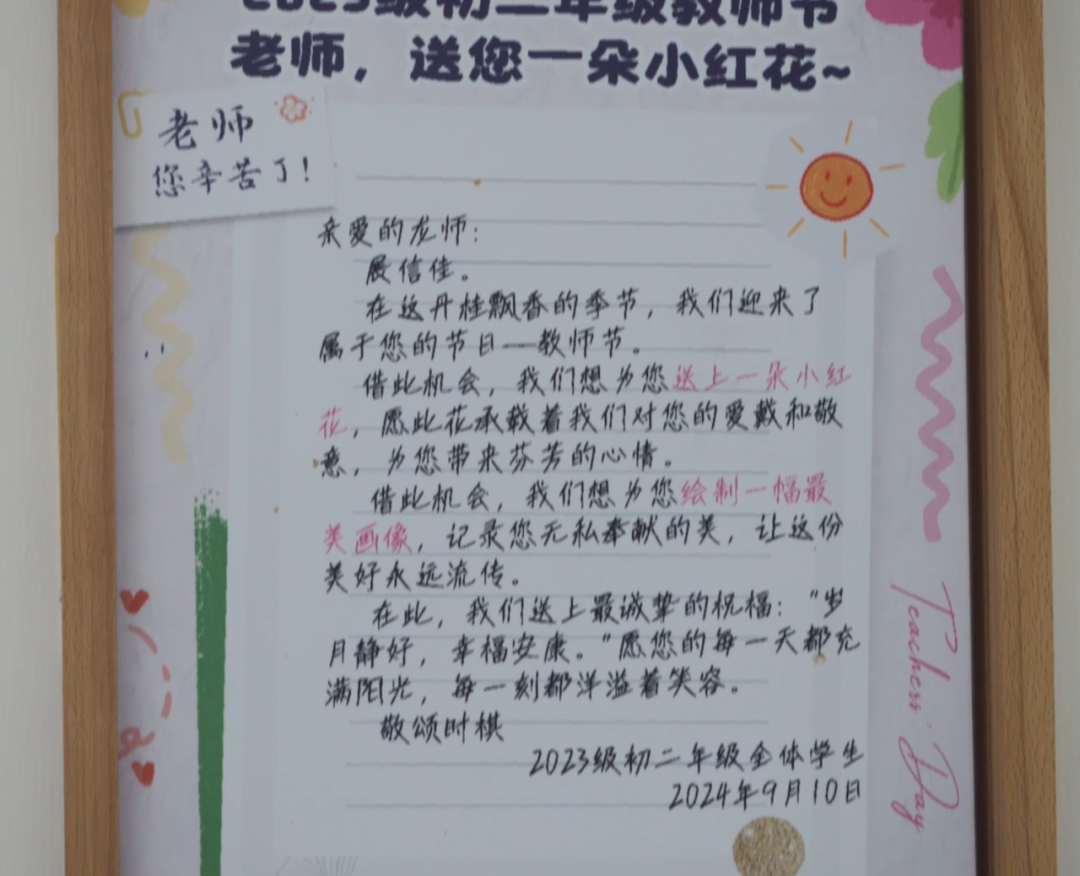 2023级初二年级教师节
老师，送您一朵小红花~
老师
您辛苦了！
亲爱的老师：
展信佳。
在这丹桂飘香的季节，我们迎来了
属于您的节日——教师节。
借此机会，我们想为您送上一朵小红
花，愿此花承载着我们对您的爱戴和敬
意，为您带来芬芳的心情。
借此机会，我们想为您绘制一幅最
美画像，记录您无私奉献的美，让这份
美好永远流传。
在此，我们送上最诚挚的祝福：“岁
月静好，幸福安康。”愿您的每一天都充
满阳光，每一刻都洋溢着笑容。
敬颂时祺
2023级初二年级全体学生
2024年9月10日
Teachers' Day